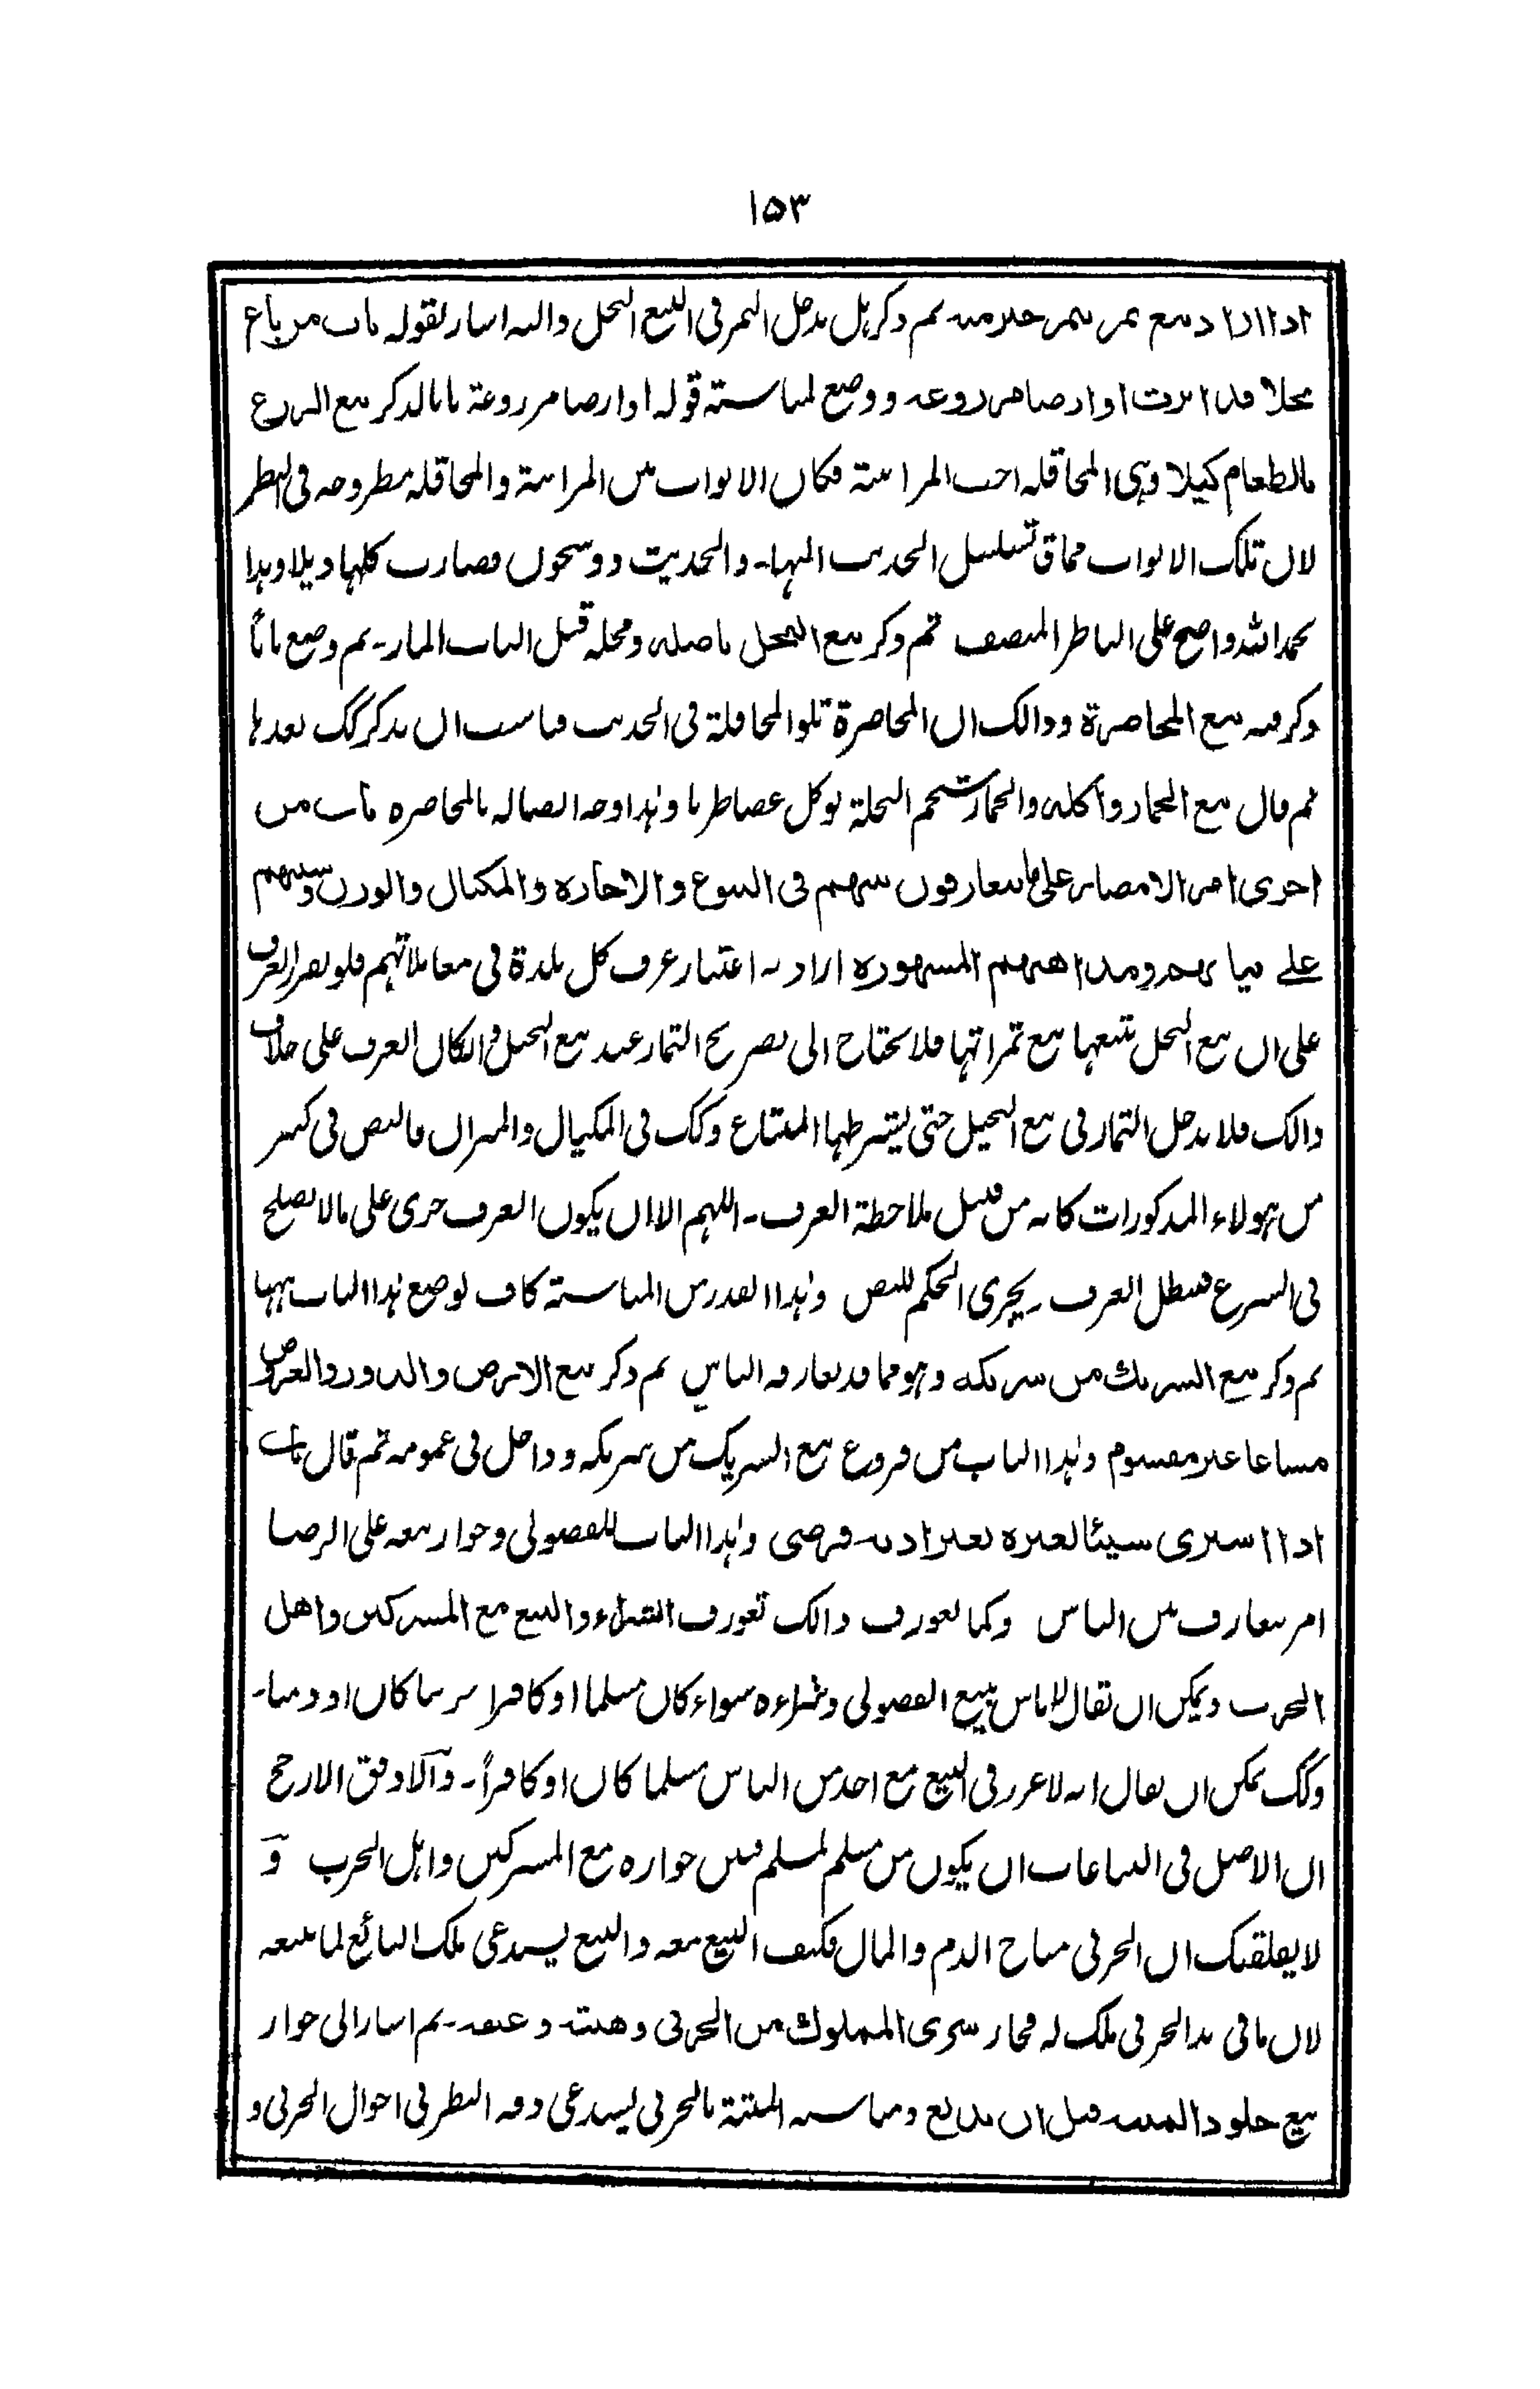 ١٥٣
اذا اراد بيع تمر بتمر خير منه ثم ذكر هل يدخل الثمر فى البيع النخل واليه اشار بقوله باب من باع
نخلا قد ابرت او ارضا مزروعة ووضع لمناسبة قوله او ارضا مزروعة بابا لذكر بيع الزرع
بالطعام كيلا وهى المحاقلة اخت المزابنة فكان الابواب بين المزابنة والمحاقلة مطروحة فى النظر
لان تلك الابواب مماق تسلسل الحديث اليها۔ والحديث ذو شجون فصارت كلها ذيلا وهذا
بحمد الله واضح على الناظر المنصف ثم ذكر بيع النخل باصله ومحله قبل الباب المار۔ ثم وضع بابًا
ذكر فيه بيع المخاضرة وذالك ان المخاضرة تلو المحاقلة فى الحديث فناسب ان يذكر كك بعدها
ثم قال بيع الجمار واكله والجمار شحم النخلة يوكل غضا طريا وهذا وجه اتصاله بالمخاضره باب من
اجرى امر الامصار على ما يتعارفون بينهم فى البيوع والاجاره والمكيال والوزن وسننهم
على نياتهم ومذاهبهم المشهوره اراد به اعتبار عرف كل بلدة فى معاملاتهم فلو تقرر العرف
على ان بيع النخل بيعها مع ثمراتها فلا يحتاج الى تصريح الثمار عند بيع النخل وان كان العرف على خلاف
ذالك فلا يدخل الثمار فى بيع النخيل حتى يشترطها المبتاع وكك فى المكيال والميزان فالنص فى كثير
من هولاء المذكورات كانه من قبل ملاحظة العرف۔ اللهم الا ان يكون العرف جرى على مالا يصلح
فى الشرع فبطل العرف يجرى الحكم للنص وهذا القدر من المناسبة كاف لوضع هذا الباب ههنا
ثم ذكر بيع الشريك من شريكه وهو مما قد تعارفه الناس ثم ذكر بيع الارض والدور والعروض
مشاعا غير مقسوم وهذا الباب من فروع بيع الشريك من شريكه وداخل فى عمومه ثم قال باب
اذا اشترى شيئا لغيره بغير اذنه فرضى وهذا الباب للفضولى وجواز بيعه على الرضا
امر متعارف بين الناس وكما تعورف ذالك تعورف الشراء والبيع مع المشركين واهل
الحرب ويمكن ان يقال لا باس ببيع الفضولى وشراءه سواء كان مسلما او كافرا حربيا كان او ذميا۔
وكك يمكن ان يقال انه لا غرر فى البيع مع احد من الناس مسلما كان او كافراً۔ والاوفق الارجح
ان الاصل فى البياعات ان يكون من مسلم لمسلم فبين جوازه مع المشركين واهل الحرب و
لا يقلقنك ان الحربى مباح الدم والمال فكيف البيع معه والبيع يستدعى ملك البائع لما يبيعه
لان ما فى يد الحربى ملك له فجاز شرى المملوك من الحربى وهبته وعتقه۔ ثم اشار الى جواز
بيع جلود الميتة قبل ان يدبغ ومناسبة الميتة بالحربى يستدعى دقة النظر فى احوال الحربى و